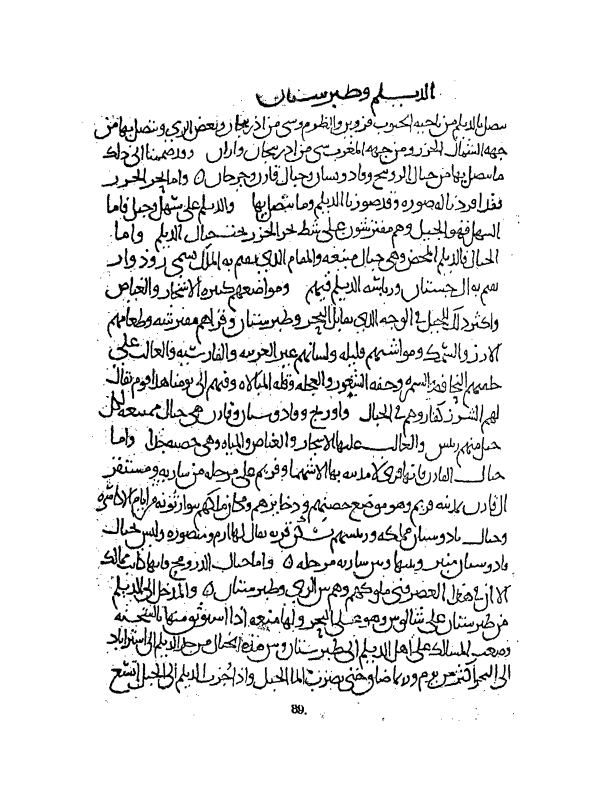 الديلم وطبرستان
يتصل بالديلم من ناحية الجنوب قزوين والطرم وشي من اذربيجان وبعض الري ويتصل بها من
جهة الشمال الخزر ومن جهة المغرب شي من اذربيجان واران وقد ضممنا الى ذلك
ما يتصل بها من جبال الروبنج وفادوسبان وجبال قارن وجرجان ٥ واما بحر الخزر
فقد افردنا له صوره وقد صورنا الديلم وما يتصل بها والديلم على سهل وجبل فاما
السهل فهو للجيل وهم مفترشون على شط بحر الخزر تحت جبال الديلم واما
الجبال فالديلم المحض وهى جبال منيعه والمقام الذى يقيم به الملك يسمى روذبار
يقيم به ال جستان ورياسه الديلم فيهم ومواضعهم كثيره الاشجار والغياض
واكثر ذلك للجيل فى الوجه الذى يقابل البحر وطبرستان وقراهم مفترشه وطعامهم
الارز والسمك ومواشيهم قليله ولسانهم غير العربيه والفارسيه والغالب على
خلقهم النحافه والسمره وخفه الشعور والعجله وقله المبالاه وفيهم الى يومنا هذا قوم يقال
لهم كفار وهم فى الجبال والروبنج وفادوسبان وقارن هى جبال ممتنعه لكل
جبل منهم رييس والغالب عليها الاشجار والغياض والمياه وهى خصبه جدا واما
جبال القارن فانها قرى لا مدينه بها الا شهمار وفريم على مرحله من ساريه ومستقر
ال قارن بمدينه فريم وهو موضع حصنهم وذخايرهم ومكان ملكهم يتوارثونه من ايام الاكاسره
وجبال فادوسبان مملكه ورييسهم يسكن قريه يقال لها ارم ومنصوره وليس بجبال
فادوسبان منبر وبينها وبين ساريه مرحله ٥ واما جبال الروبنج فانها كانت ممالك
الا ان فى هذا العصر فنى ملوكهم وهم بين الرى وطبرستان ٥ والمدخل الى الديلم
من طبرستان على شالوس وهو على البحر ولها منعه اذا استوثق منها بالشحنه
وصعب المسالك على اهل الديلم الى طبرستان وبين هذه الجبال من حد الديلم الى استراباد
الى البحر اكثر من يوم وربما ضاق حتى يضرب الماء الجبل واذا جزت الديلم الى الجيل اتسع
89.